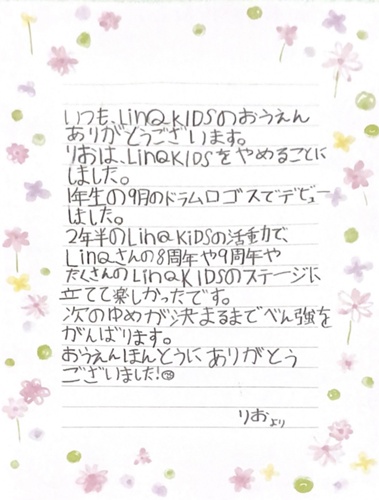 いつも、LinQ KIDSのおうえん
ありがとうございます。
りおは、LinQ KIDSをやめることに
しました。
1年生の9月のドラムロゴスでデビュー
しました。
2年半のLinQ KiDSの活動で、
LinQさんの8周年や9周年や
たくさんのLinQ KIDSのステージに
立てて楽しかったです。
次のゆめが決まるまでべん強を
がんばります。
おうえんほんとうにありがとう
ございました!
りおより